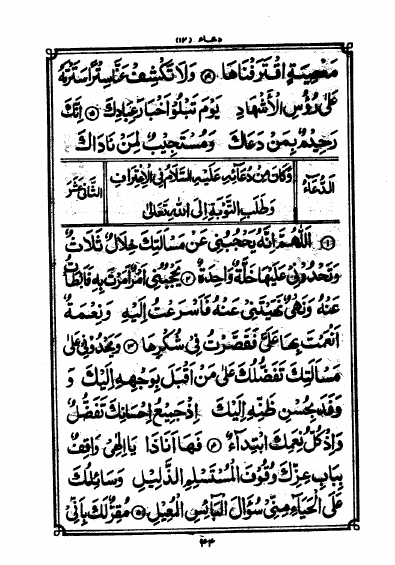 دعاء (۱۲)
مَعْصِيَةٍ اقْتَرَفْنَاهَا ۞ وَلَا تَكْشِفْ عَنَّا سِتْرًا سَتَرْتَهُ
عَلَى رُؤُسِ الْأَشْهَادِ يَوْمَ تَبْلُوْ أَخْبَارَ عِبَادِكَ ۞ اِنَّكَ
رَحِيْمٌ بِمَنْ دَعَاكَ وَمُسْتَجِيْبٌ لِمَنْ نَادَاكَ
الدُّعَاءُ
وَكَانَ مِنْ دُعَائِهِ عَلَيْهِ السَّلَامُ فِي الْاِعْتِرَافِ
وَطَلَبِ التَّوْبَةِ إِلَى اللهِ تَعَالَى
الثَّانِي عَشَرَ
۞ اَللّٰهُمَّ اِنَّهُ يَحْجُبُنِيْ عَنْ مَسْأَلَتِكَ خِلَالٌ ثَلَاثٌ
وَتَحْدُوْنِيْ عَلَيْهَا خَلَّةٌ وَاحِدَةٌ ۞ يَحْجُبُنِيْ اَمْرٌ اَمَرْتَ بِهِ فَاَبْطَأْتُ
عَنْهُ وَنَهْيٌ نَهَيْتَنِيْ عَنْهُ فَاَسْرَعْتُ اِلَيْهِ وَنِعْمَةٌ
اَنْعَمْتَ بِهَا عَلَيَّ فَقَصَّرْتُ فِيْ شُكْرِهَا ۞ وَيَحْدُوْنِيْ عَلَى
مَسْأَلَتِكَ تَفَضُّلُكَ عَلَى مَنْ اَقْبَلَ بِوَجْهِهِ اِلَيْكَ وَ
وَفَدَ بِحُسْنِ ظَنِّهِ اِلَيْكَ اِذْ جَمِيْعُ اِحْسَانِكَ تَفَضُّلٌ
وَاِذْ كُلُّ نِعَمِكَ ابْتِدَاءٌ ۞ فَهَا اَنَا ذَا يَا اِلٰهِيْ وَاقِفٌ
بِبَابِ عِزِّكَ وُقُوْفَ الْمُسْتَسْلِمِ الذَّلِيْلِ وَسَائِلُكَ
عَلَى الْحَيَاءِ مِنِّيْ سُؤَالَ الْبَائِسِ الْمُعِيْلِ ۞ مُقِرٌّ لَكَ بِاَنِّيْ
۴۴